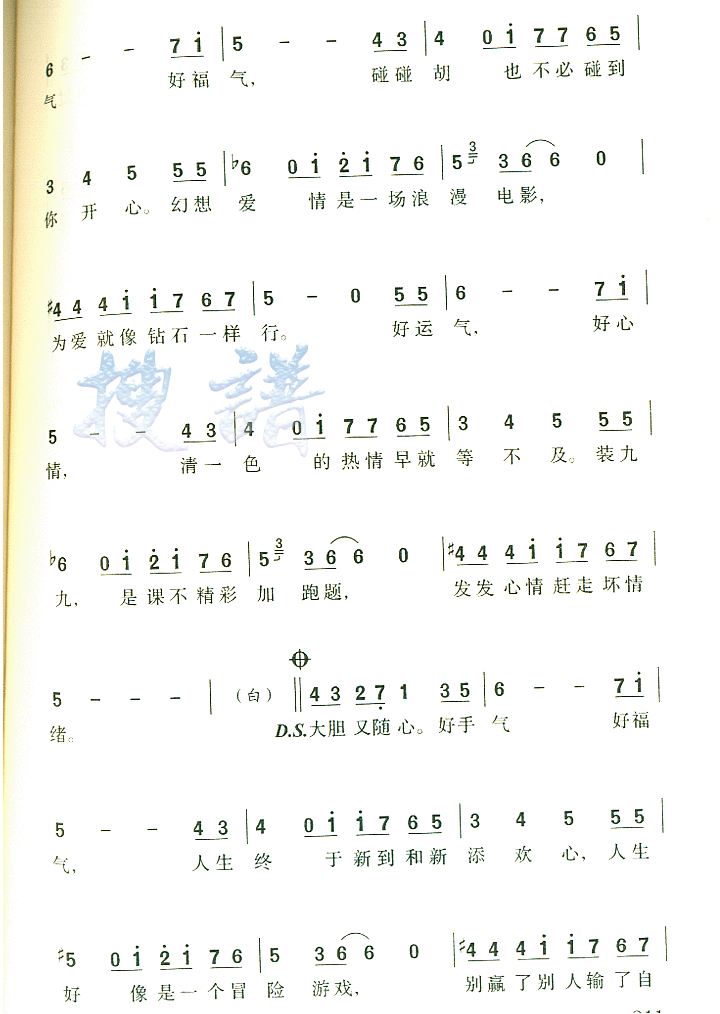 6 - - 7 i | 5 - - 4 3 | 4 0 i 7 7 6 5 |
气 好福 气, 碰碰 胡 也 不必 碰到
3 4 5 5 5 | ♭6 0 i 2 i 7 6 | 5 3 3 6 6 0 |
你 开 心。幻想 爱 情是一场浪 漫 电影,
♯4 4 4 i i 7 6 7 | 5 - 0 5 5 | 6 - - 7 i |
为爱 就像 钻石 一样 行。 好运 气, 好心
搜谱
5 - - 4 3 | 4 0 i 7 7 6 5 | 3 4 5 5 5 |
情, 清一 色 的热情早就 等 不 及。装九
♭6 0 i 2 i 7 6 | 5 3 3 6 6 0 | ♯4 4 4 i i 7 6 7 |
九, 是课不精彩 加 跑题, 发发 心情 赶走 坏情
5 - - - | (白) 4 3 2 7 1 3 5 | 6 - - 7 i |
绪。 D.S.大胆 又随 心。好手 气 好福
5 - - 4 3 | 4 0 i i 7 6 5 | 3 4 5 5 5 |
气, 人生 终 于新到和新 添 欢 心, 人生
♯5 0 i 2 i 7 6 | 5 3 6 6 0 | ♯4 4 4 i i 7 6 7 |
好 像是一个冒 险 游戏, 别赢 了别 人输 了自